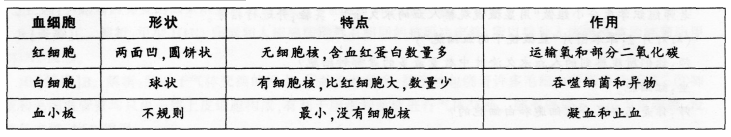 血细胞 形状 特点 作用
红细胞 两面凹,圆饼状 无细胞核,含血红蛋白数量多 运输氧和部分二氧化碳
白细胞 球状 有细胞核,比红细胞大,数量少 吞噬细菌和异物
血小板 不规则 最小,没有细胞核 凝血和止血